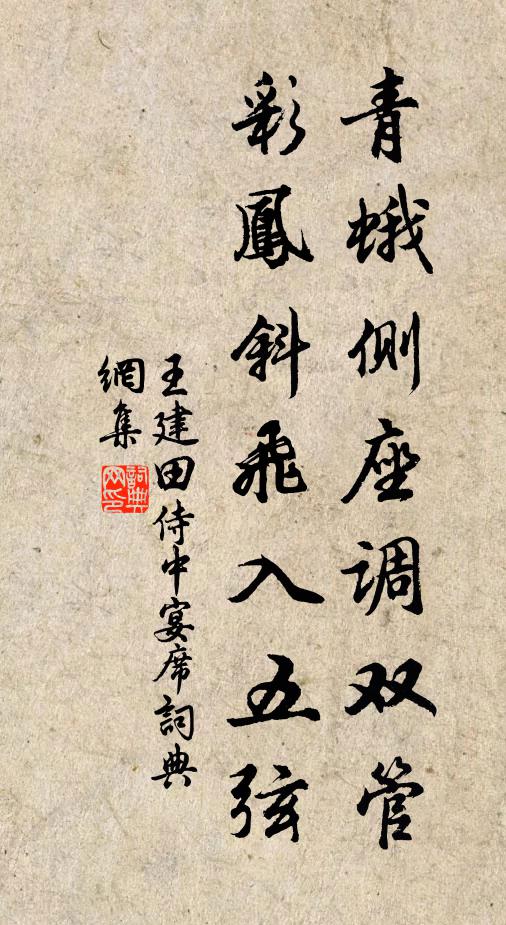 青蛾侧座调双管
彩鳳斜飛入五弦
王建田侍中宴席詞典
網集
詞典
网印